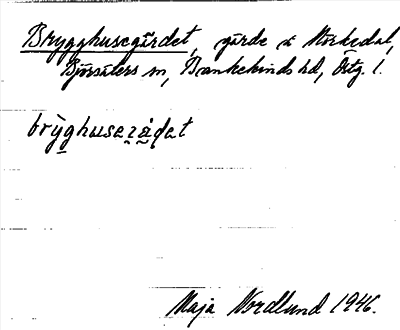 Brygghusegärdet, gärde i Storkedal,
Björsäters sn, Bankekinds hd, Östg. l.
brỳghuse
Maja Nordlund 1946.